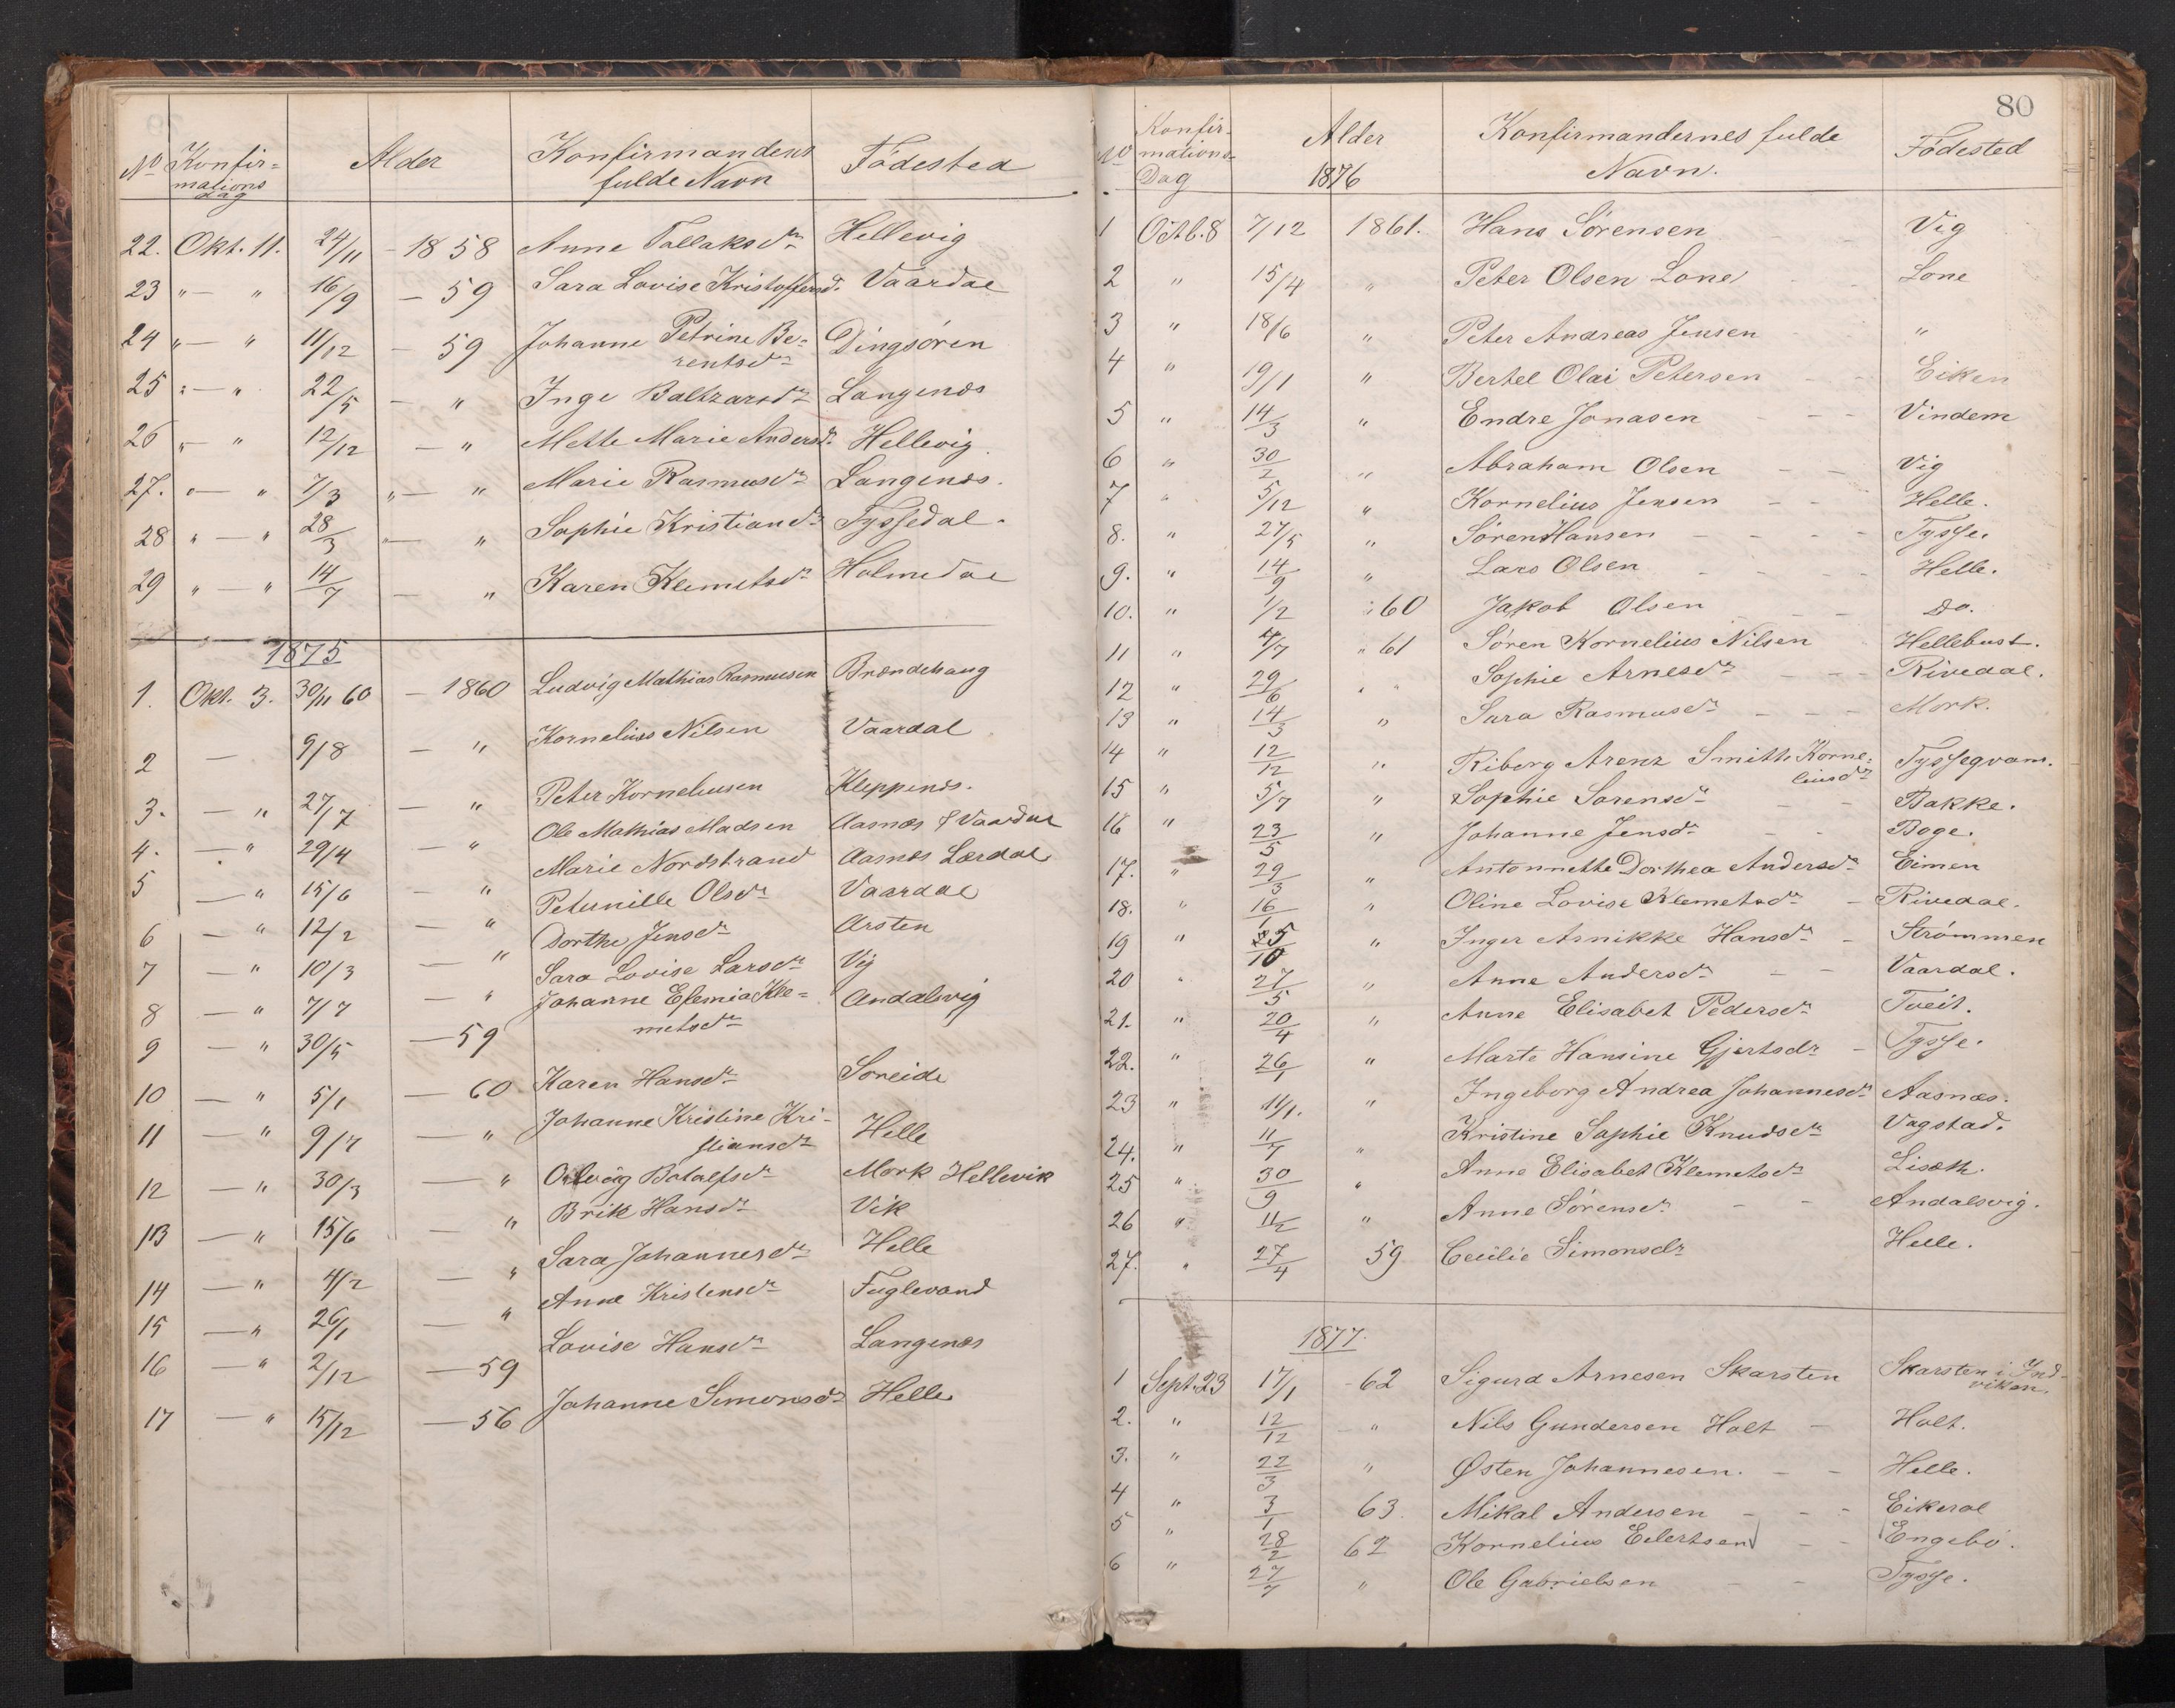 No Konfir= mations dag Alder Konfirmandens fulde Navn Fødested
22. Okt. 11. 24/11 - 1858 Anne Tollaksdr Hellevig
23 " — " 16/9 — 59 Sara Lovise Kristoffersd. Vaardal
24 " — " 11/12 — 59 Johanne Petrine Be= Dingsøren
rentsdr
25 " — " 22/5 — " Inge Baltzarsdr Langenæs
26 " — " 12/12 — " Mette Marie Andersdr. Hellevig.
27. " — " 7/3 " — " Marie Rasmusdr Langenæs.
28 " — " 28/3 " — " Sophie Kristiansdr Tyssedal.
29 " — " 14/7 — " Karen Klemetsdr Holmedal
1875
1. Okt. 3. 30/11 60 — 1860 Ludvig Mathias Rasmusen Brændehaug
2 — 9/8 — " Kornelius Nilsen Vaardal
3. — " 27/7 — " Peter Korneliusen Kleppenes.
4. — " 29/4 — " Ole Mathias Madsen Aasnæs & Vaardal
5 — " 15/6 — " Marie Nordstrand Aasnæs Lærdal
6 — " 12/2 — " Petunille Olsdr Vaardal
7 — " 10/3 — " Dorthe Jensdr Arsten
8 — " 7/7 — " Sara Lovise Larsdr Vig
9 — " 30/5 — 59 Johanne Efemia Kle= Andalsvig
metsdr
10 — " 5/1 — 60 Karen Hansdr Soreide
11 — " 9/7 — " Johanne Kristine Kri- Helle
stiansdr
12 — " 30/3 — " Botolfsdr Mork Hellevik
13 — " 15/6 — " Brik Hansdr Vik
14 — " 4/2 — " Sara Johannesdr Helle
15 — " 26/1 — " Anne Kristensdr Fuglevand
16 — " 2/12 — 59 Lovise Hansdr Langenæs
17 — " 15/12 — 56 Johanne Simonsdr Helle
80
No Konfir- mations- Dag Alder 1876 Konfirmandernes fulde Navn. Fødested
1 Octb. 8 7/12 1861. Hans Sørensen Vig
2 " 15/4 " Peter Olsen Lone Lone
3 " 18/6 " Peter Andreas Jensen "
4 " 19/1 " Bertel Olai Petersen Eiken
5 " 14/3 " Endre Jonasen Vindem
6 " 30/2 " Abraham Olsen Vig
7 " 5/12 " Kornelius Jensen Helle.
8. " 27/5 " Søren Hansen Tysse.
9. " 14/9 " Lars Olsen Helle.
10. " 1/2 " 60 Jakob Olsen Do.
11 " 4/7 " 61 Søren Kornelius Nilsen Hellebust.
12 " 29/6 " " Sophie Arnesdr Rivedal.
13 " 14/3 " Sara Rasmusdr Mork.
14 " 12/12 " Riborg Arenz Smith Korne= Tysseqvam.
liusdr
15 " 5/7 " Sophie Sørensdr Bakke.
16 " 23/5 " Johanne Jensdr Boge.
17. " 29/3 " Antonnette Dorthea Andersdr Eimen
18. " 16/1 " Oline Lovise Klemetsdr Rivedal.
19 " 25/10 " Inger Arnikke Hansdr Strømmen
20 " 27/5 " Anne Andersdr Vaardal.
21. " 20/4 " Anne Elisabet Pedersdr Tveit.
22. " 26/1 " Marte Hansine Gjertsdr Tysse.
23 " 14/1. " Ingeborg Andrea Johannesdr Aasnæs.
24. " 11/1 " Kristine Sophie Knudsdr Vagstad.
25 " 30/9 " Anne Elisabet Klemetsdr Lisæth.
26 " 11/2 " Anne Sørensdr Andalsvig.
27. " 27/4 59 Cecilie Simonsdr Helle.
1877.
1 Sept. 23 17/1 - 62 Sigurd Arnesen Skarsten Skarsten i Ind-
viken.
2. " 12/12 " Nils Gundersen Holt Holt.
3. " 22/3 " Østen Johannesen. Helle.
4 " 3/1 63. Mikal Andersen Eikeral
5 " 28/2 62 Kornelius Eilertsen Engebø.
6 " 27/7 " Ole Gabrielsen Tysse.